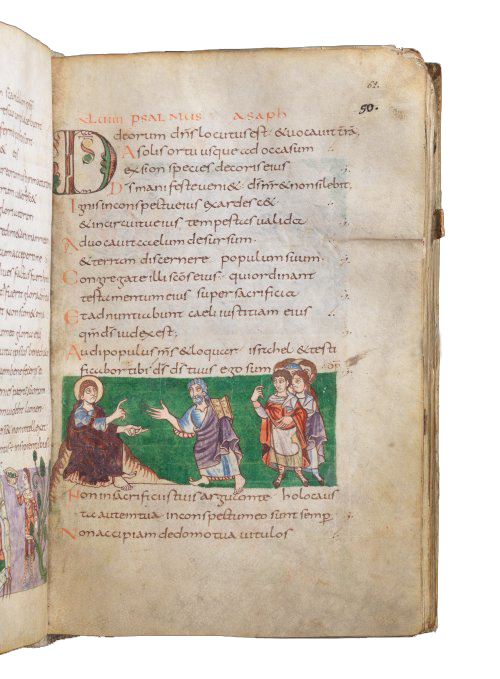 61.
50.
XLVIIII PSALMUS ASAPH
Deorum dns locutus est & vocavit trā,
A solis ortu usque ad occasum
ex sion species decoris eius
Ds manifeste veni& ds nr & non silebit,
Ignis in conspectu eius exardesc&
& in circuitu eius tempestas valida
Advocavit caelum desursum
& terram discernere populum suum
Congregate illi scōs eius qui ordinant
testamentum eius super sacrificia
Et adnuntiabunt caeli iustitiam eius
qm ds iudex est;
Audi populus ms & loquar israhel & testi
ficabor tibi ds ds tuus ego sum
Non in sacrificiis tuis arguam te holocaus
ta autem tua in conspectu meo sunt semp
Non accipiam de domo tua vitulos